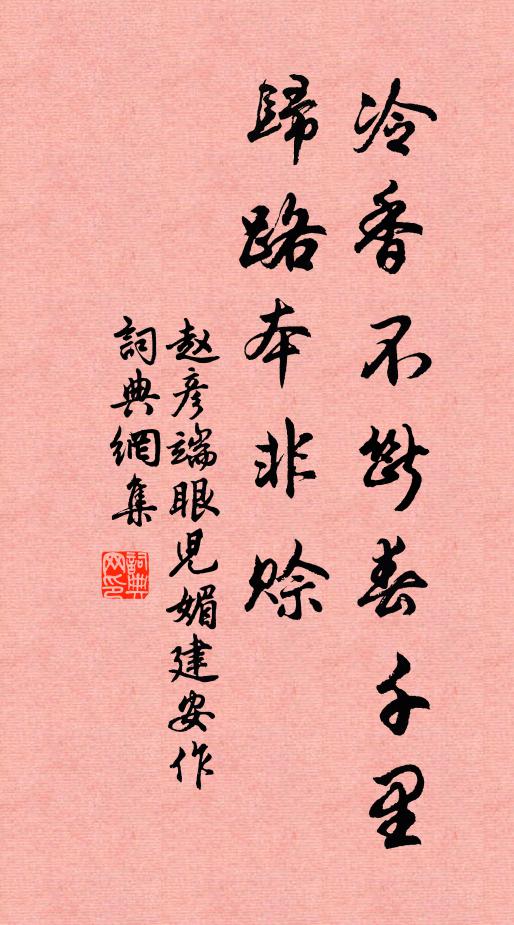 冷香不斷春千里
歸路本非賒
赵彦端眼児媚建安作
詞典網集
詞典網印